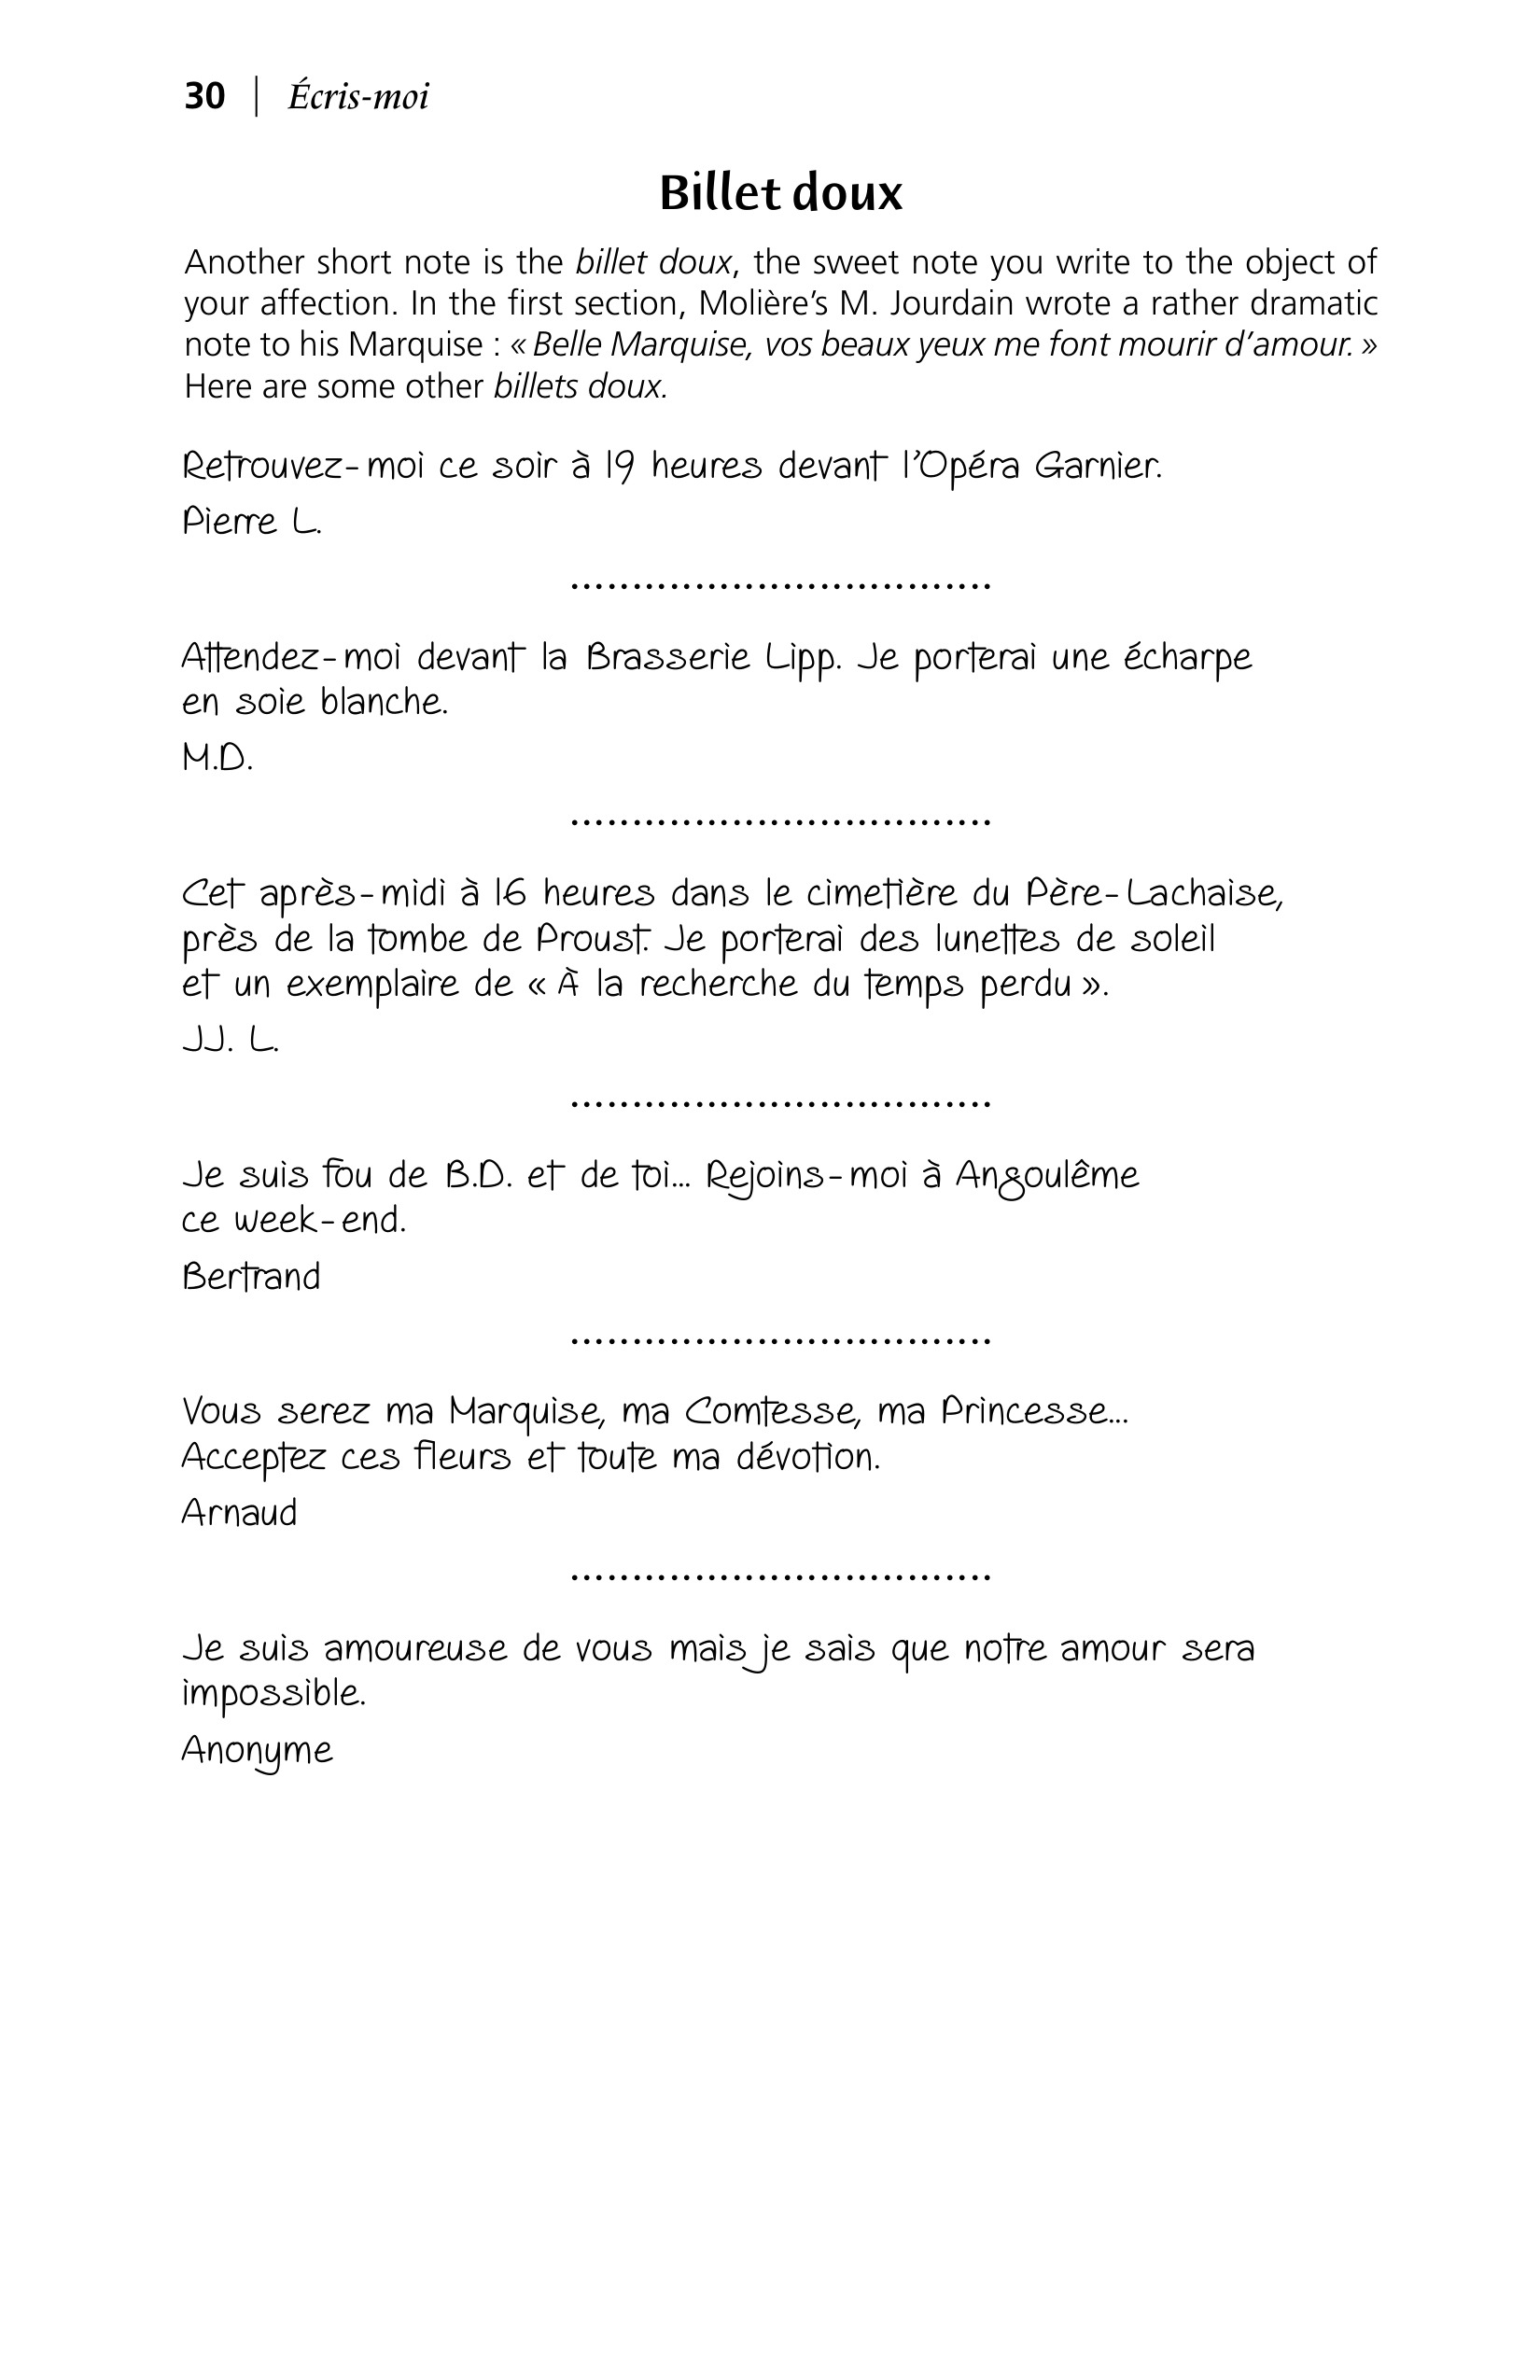 30 | Écris-moi
Billet doux
Another short note is the billet doux, the sweet note you write to the object of
your affection. In the first section, Molière’s M. Jourdain wrote a rather dramatic
note to his Marquise : « Belle Marquise, vos beaux yeux me font mourir d’amour. »
Here are some other billets doux.
Retrouvez-moi ce soir à 19 heures devant l’Opéra Garnier.
Pierre L.
..................................
Attendez-moi devant la Brasserie Lipp. Je porterai une écharpe
en soie blanche.
M.D.
..................................
Cet après-midi à 16 heures dans le cimetière du Père-Lachaise,
près de la tombe de Proust. Je porterai des lunettes de soleil
et un exemplaire de « À la recherche du temps perdu ».
JJ. L.
..................................
Je suis fou de B.D. et de toi... Rejoins-moi à Angoulême
ce week-end.
Bertrand
..................................
Vous serez ma Marquise, ma Comtesse, ma Princesse...
Acceptez ces fleurs et toute ma dévotion.
Arnaud
..................................
Je suis amoureuse de vous mais je sais que notre amour sera
impossible.
Anonyme